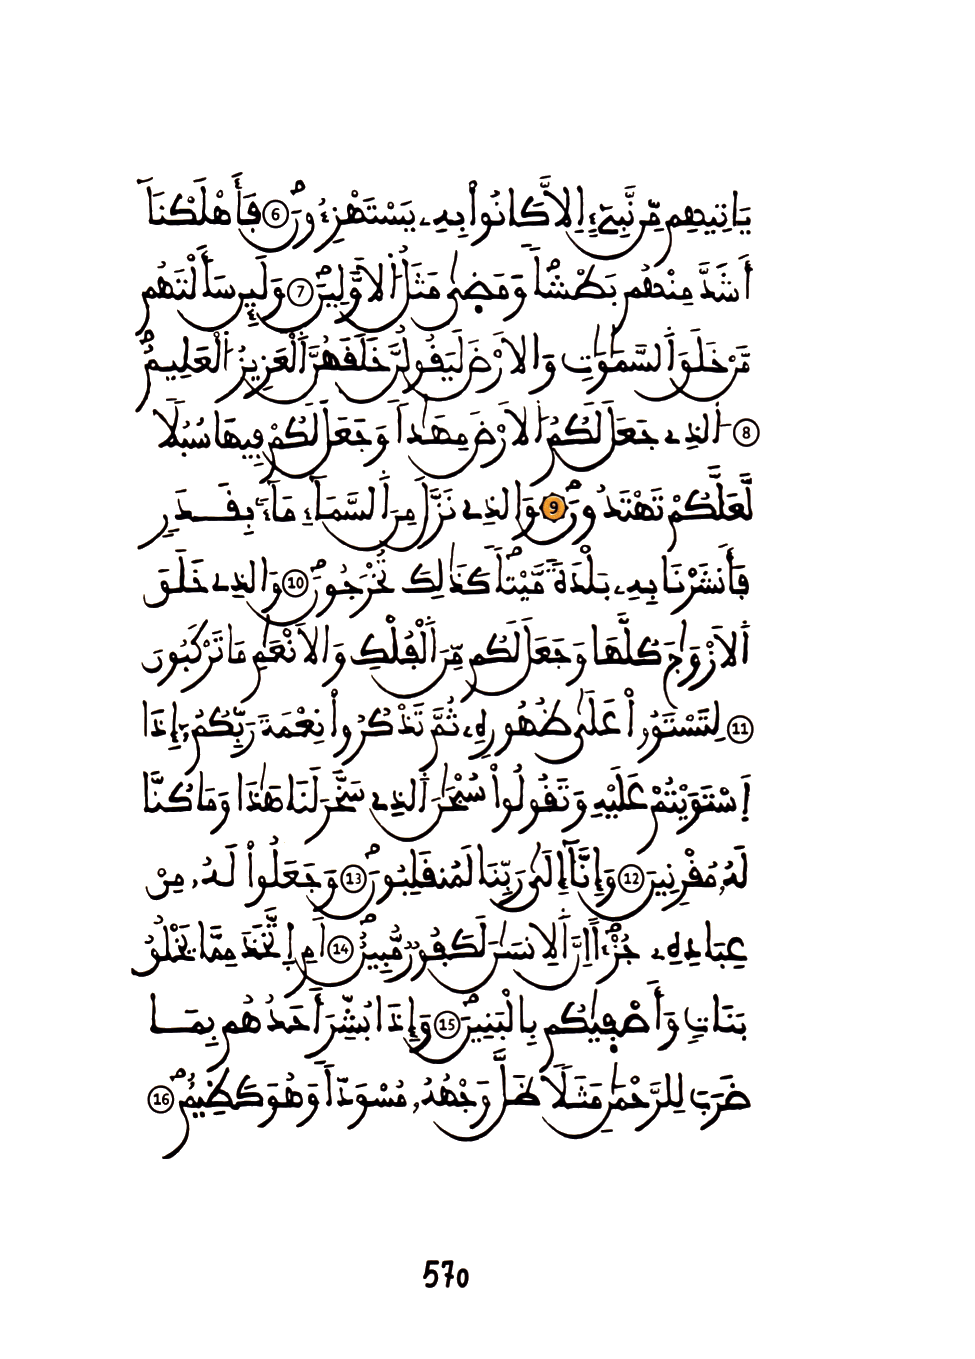 يَاتِيهِم مِّن نَّبِيٓءٍ اِلَّا كَانُواْ بِهِۦ يَسْتَهْزِءُونَۖ 6 فَأَهْلَكْنَآ
أَشَدَّ مِنْهُم بَطْشاٗ وَمَضٜىٰ مَثَلُ اُ۬لَاوَّلِينَۖ 7 وَلَئِن سَأَلْتَهُم
مَّنْ خَلَقَ اَ۬لسَّمَٰوَٰتِ وَالَارْضَ لَيَقُولُنَّ خَلَقَهُنَّ اَ۬لْعَزِيزُ اُ۬لْعَلِيمُۖ
8 اُ۬لذِے جَعَلَ لَكُمُ اُ۬لَارْضَ مِهَٰداٗ وَجَعَلَ لَكُمْ فِيهَا سُبُلاٗ
لَّعَلَّكُمْ تَهْتَدُونَۖ 9 وَالذِے نَزَّلَ مِنَ اَ۬لسَّمَآءِ مَآءَۢ بِقَدَرٖ
فَأَنشَرْنَا بِهِۦ بَلْدَةٗ مَّيْتاٗۖ كَذَٰلِكَ تُخْرَجُونَۖ 10 وَالذِے خَلَقَ
اَ۬لَازْوَٰجَ كُلَّهَا وَجَعَلَ لَكُم مِّنَ اَ۬لْفُلْكِ وَالَانْعَٰمِ مَا تَرْكَبُونَ
11 لِتَسْتَوُۥاْ عَلَىٰ ظُهُورِهِۦ ثُمَّ تَذْكُرُواْ نِعْمَةَ رَبِّكُمُۥٓ إِذَا
اَ۪سْتَوَيْتُمْ عَلَيْهِ وَتَقُولُواْ سُبْحَٰنَ اَ۬لذِے سَخَّرَ لَنَا هَٰذَا وَمَا كُنَّا
لَهُۥ مُقْرِنِينَ 12 وَإِنَّآ إِلَىٰ رَبِّنَا لَمُنقَلِبُونَۖ 13 وَجَعَلُواْ لَهُۥ مِنْ
عِبَادِهِۦ جُزْءاًۖ اِنَّ اَ۬لِانسَٰنَ لَكَفُورٞ مُّبِينٌۖ 14 اَمِ اِ۪تَّخَذَ مِمَّا يَخْلُقُ
بَنَاتٖ وَأَصْفٜيٰكُم بِالْبَنِينَۖ 15 وَإِذَا بُشِّرَ أَحَدُهُم بِمَا
ضَرَبَ لِلرَّحْمَٰنِ مَثَلاٗ ظَلَّ وَجْهُهُۥ مُسْوَدّاٗ وَهُوَ كَظِيمٌۖ 16
570